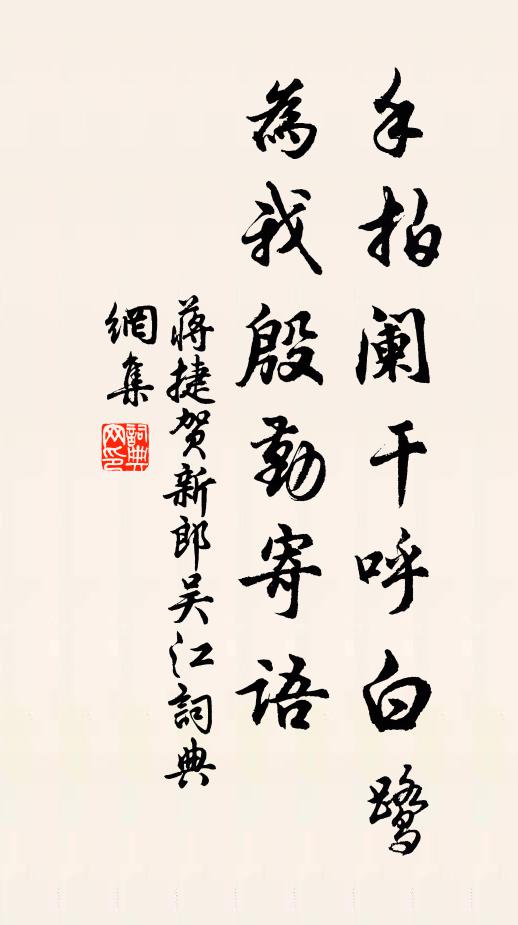 手拍阑干呼白鹭
為我殷勤寄語
蔣捷贺新郎吴江詞典
網集
詞典網印